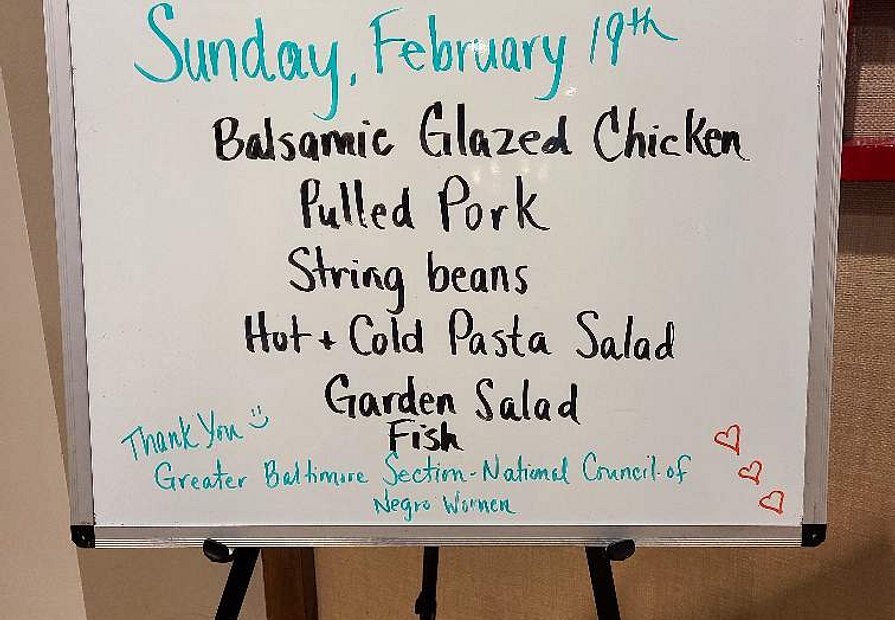 Sunday, February 19th
Balsamic Glazed Chicken
Pulled Pork
String beans
Hot + Cold Pasta Salad
Garden Salad
Fish
Thank You :)
Greater Baltimore Section - National Council of
Negro Women